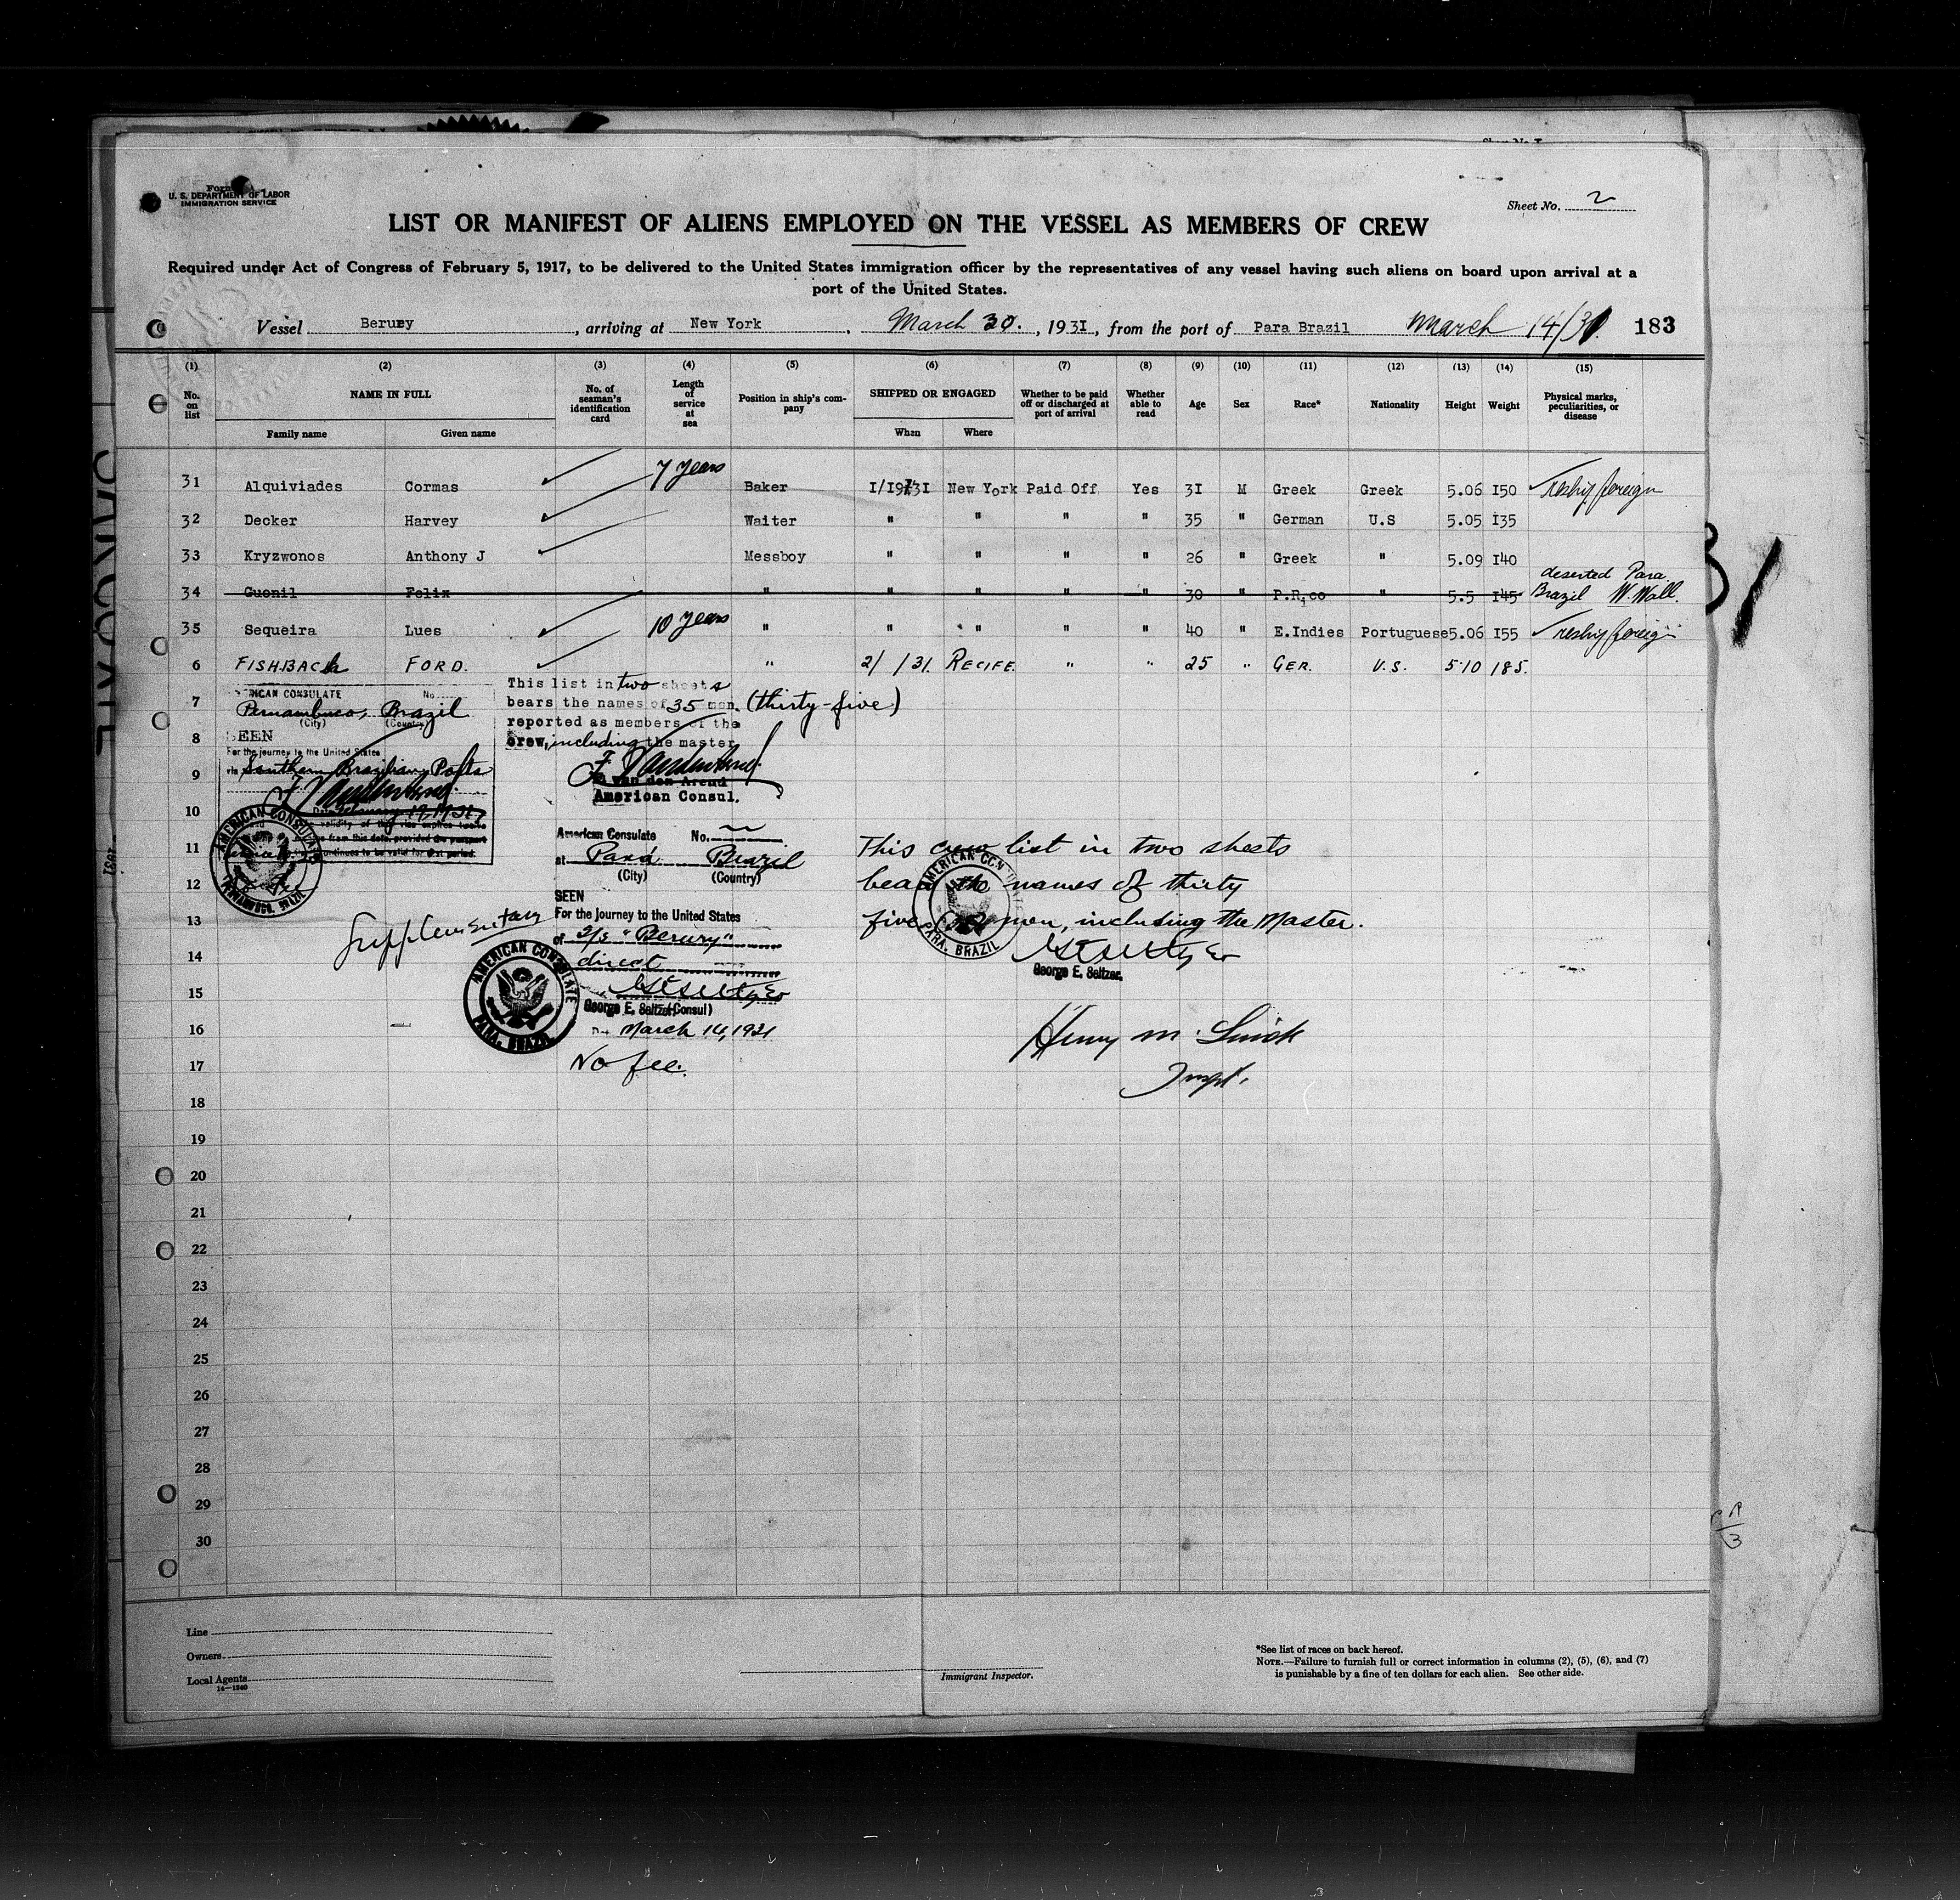 Form
U. S. DEPARTMENT OF LABOR
IMMIGRATION SERVICE
Sheet No. 2
LIST OR MANIFEST OF ALIENS EMPLOYED ON THE VESSEL AS MEMBERS OF CREW
Required under Act of Congress of February 5, 1917, to be delivered to the United States immigration officer by the representatives of any vessel having such aliens on board upon arrival at a
port of the United States.
Vessel Berury, arriving at New York, March 30., 1931, from the port of Para Brazil March 14/31. 183
(1) (2) (3) (4) (5) (6) (7) (8) (9) (10) (11) (12) (13) (14) (15)
No. on list NAME IN FULL No. of seaman's identification card Length of service at sea Position in ship's company SHIPPED OR ENGAGED Whether to be paid off or discharged at port of arrival Whether able to read Age Sex Race* Nationality Height Weight Physical marks, peculiarities, or disease
Family name Given name When Where
31 Alquiviades Cormas 7 years Baker I/I9/31 New York Paid Off Yes 3I M Greek Greek 5.06 I50 reship foreign
32 Decker Harvey Waiter " " " " 35 " German U.S 5.05 I35
33 Kryzwonos Anthony J Messboy " " " " 26 " Greek " 5.09 I40
deserted Para
34 Guonil Felix " " " " " 30 " P.R,co " 5.5 I45 Brazil W. Wall.
35 Sequeira Lues 10 years " " " " " 40 " E.Indies Portuguese 5.06 I55 reship foreign
6 FISHBACH FORD. " 2/ /31. RECIFE " " 25 " GER. U.S. 5'10 185.
AMERICAN CONSULATE No.
7 Pernambuco, Brazil
(City) (Country)
8 SEEN
For the journey to the United States
9 via Southern Brazilian Ports
This list in two sheets
bears the names of 35 men. (thirty-five)
reported as members of the
crew, including the master
van den Arend
American Consul.
10
AMERICAN CONSULATE
PERNAMBUCO, BRAZIL
11
American Consulate No.
at Pará Brazil
(City) (Country)
12
SEEN
13 For the Journey to the United States
of S/S "Berury"
14 direct
15 George E. Seltzer (Consul)
16 March 14, 1931
17 No fee.
Supplementary
AMERICAN CONSULATE
PARA, BRAZIL
This crew list in two sheets
bears the names of thirty
five (35) men, including the Master.
AMERICAN CONSULATE
PARA, BRAZIL
George E. Seltzer.
Henry M.
Inspt.
18
19
20
21
22
23
24
25
26
27
28
29
30
Line
Owners
Local Agents
14—1240
Immigrant Inspector.
*See list of races on back hereof.
NOTE.—Failure to furnish full or correct information in columns (2), (5), (6), and (7)
is punishable by a fine of ten dollars for each alien. See other side.